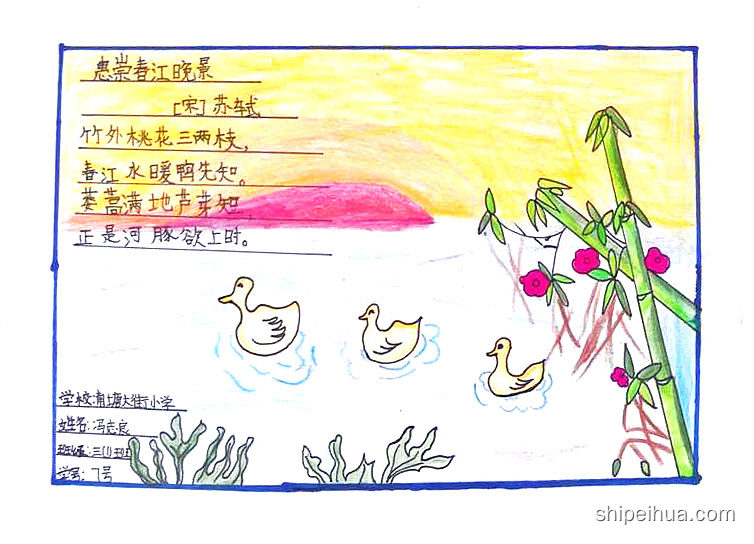 惠崇春江晚景
[宋]苏轼
竹外桃花三两枝,
春江水暖鸭先知。
蒌蒿满地芦芽短,
正是河豚欲上时。
学校:浦塘大街小学
姓名:冯志良
班级:三(1)班
学号:7号
shipeihua.com